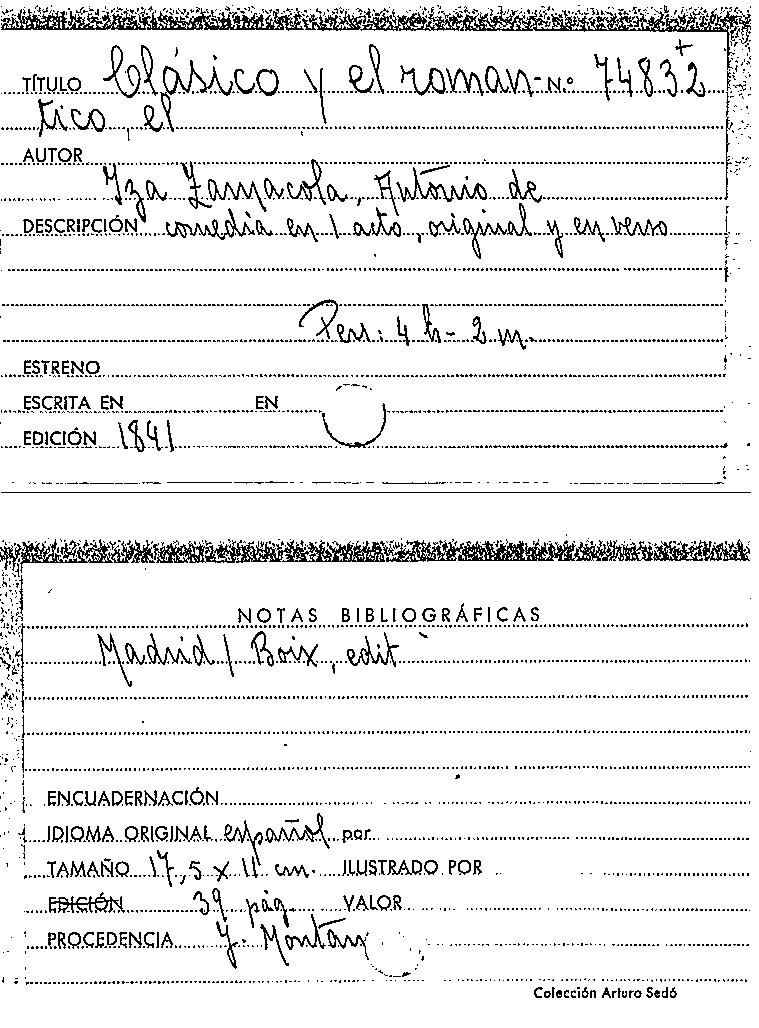 TÍTULO Clásico y el roman- N.º 74832+
tico, el
AUTOR
Iza Zamacola, Antonio de
DESCRIPCIÓN comedia en 1 acto, original y en verso
Pers: 4 h - 2 m.
ESTRENO
ESCRITA EN EN
EDICIÓN 1841
NOTAS BIBLIOGRÁFICAS
Madrid / Boix, edit
ENCUADERNACIÓN
IDIOMA ORIGINAL español por
TAMAÑO 17,5 x 11 cm. ILUSTRADO POR
EDICIÓN 39 pág. VALOR
PROCEDENCIA J. Montan
Colección Arturo Sedó